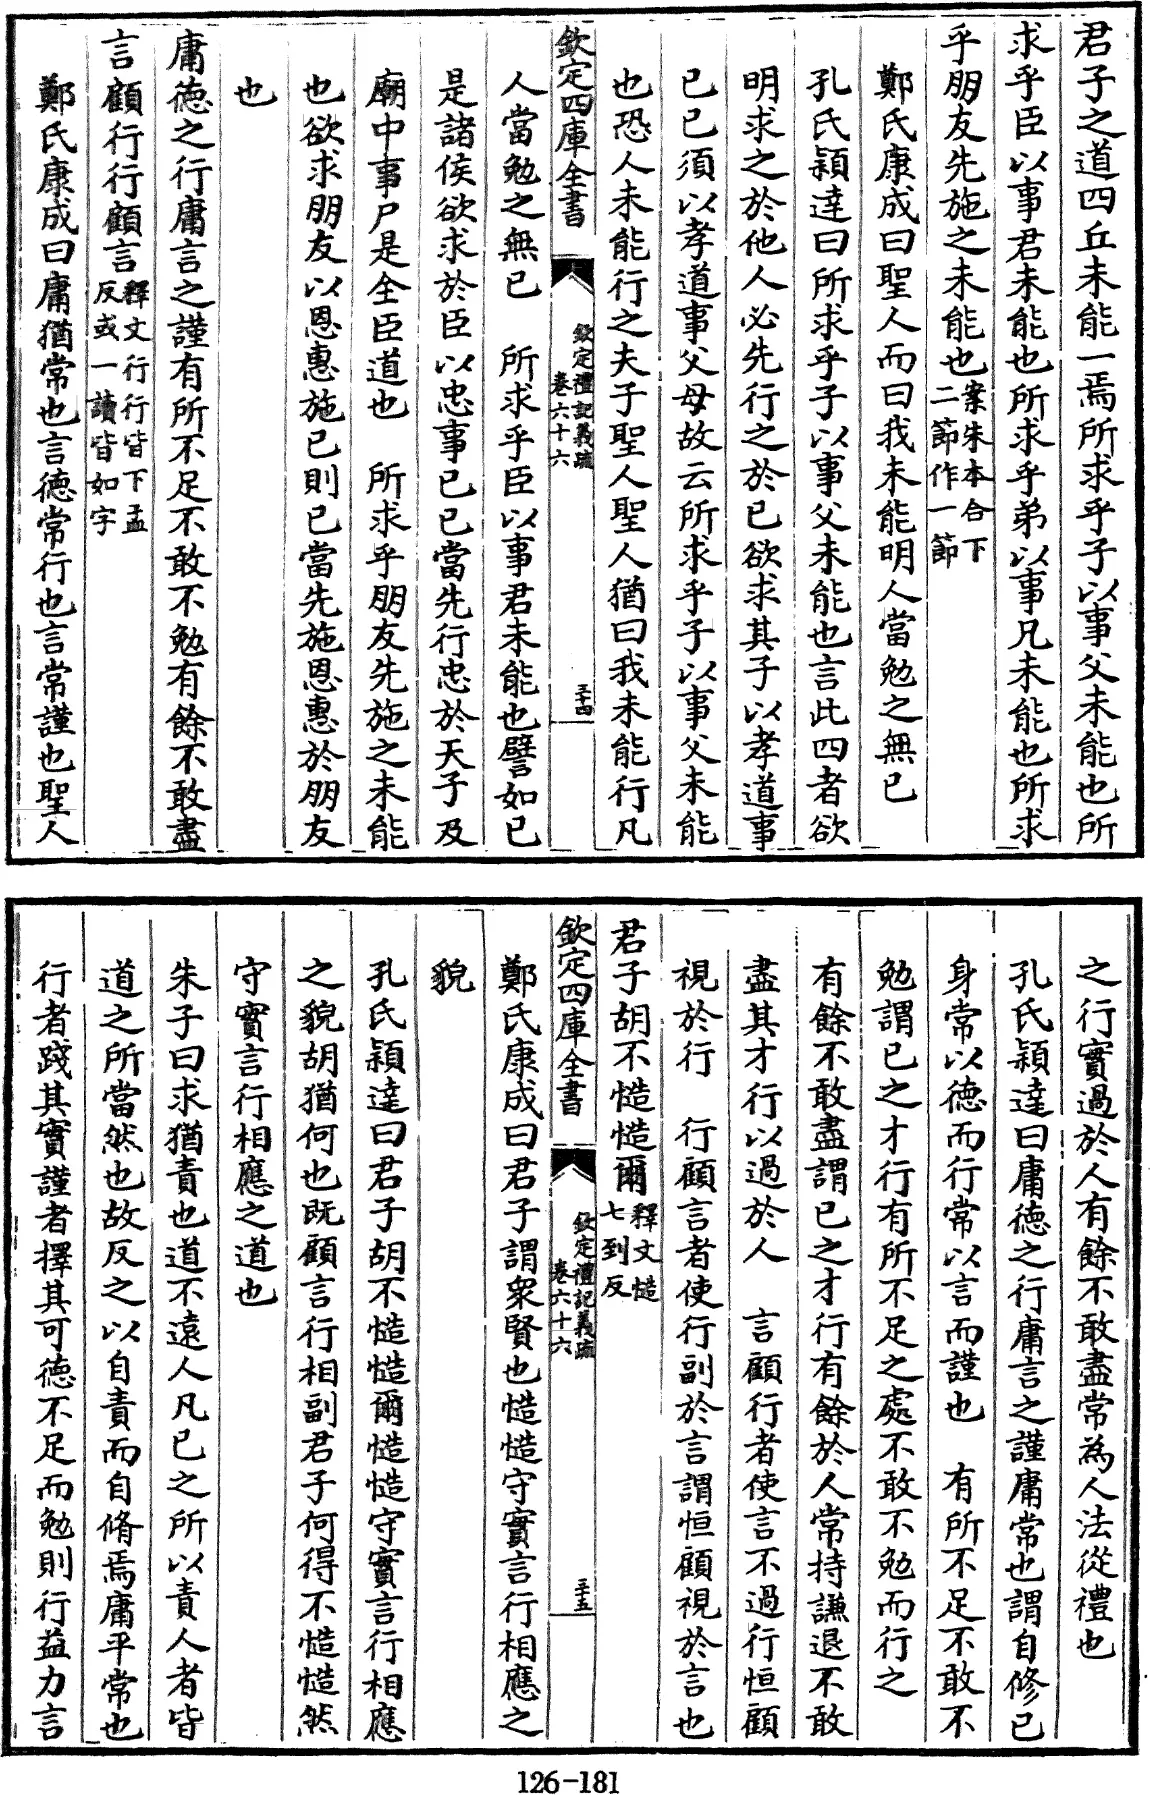 君子之道四丘未能一焉所求乎子以事父未能也所
求乎臣以事君未能也所求乎弟以事兄未能也所求
乎朋友先施之未能也案朱本合下二節作一節
鄭氏康成曰聖人而曰我未能明人當勉之無已
孔氏穎達曰所求乎子以事父未能也言此四者欲
明求之於他人必先行之於已欲求其子以孝道事
已已須以孝道事父母故云所求乎子以事父未能
也恐人未能行之夫子聖人聖人猶曰我未能行凡
欽定四庫全書 欽定禮記義疏 卷六十六 三十四
人當勉之無已 所求乎臣以事君未能也譬如已
是諸侯欲求於臣以忠事已已當先行忠於天子及
廟中事尸是全臣道也 所求乎朋友先施之未能
也欲求朋友以恩惠施已則已當先施恩惠於朋友
也
庸德之行庸言之謹有所不足不敢不勉有餘不敢盡
言顧行行顧言釋文行行皆下孟反或一讀皆如字
鄭氏康成曰庸猶常也言德常行也言常謹也聖人
之行實過於人有餘不敢盡常為人法從禮也
孔氏穎達曰庸德之行庸言之謹庸常也謂自修已
身常以德而行常以言而謹也 有所不足不敢不
勉謂已之才行有所不足之處不敢不勉而行之
有餘不敢盡謂已之才行有餘於人常持謙退不敢
盡其才行以過於人 言顧行者使言不過行恒顧
視於行 行顧言者使行副於言謂恒顧視於言也
君子胡不慥慥爾釋文慥七到反
欽定四庫全書 欽定禮記義疏 卷六十六 三十五
鄭氏康成曰君子謂衆賢也慥慥守實言行相應之
貌
孔氏穎達曰君子胡不慥慥爾慥慥守實言行相應
之貌胡猶何也既顧言行相副君子何得不慥慥然
守實言行相應之道也
朱子曰求猶責也道不遠人凡已之所以責人者皆
道之所當然也故反之以自責而自脩焉庸平常也
行者踐其實謹者擇其可德不足而勉則行益力言
126-181